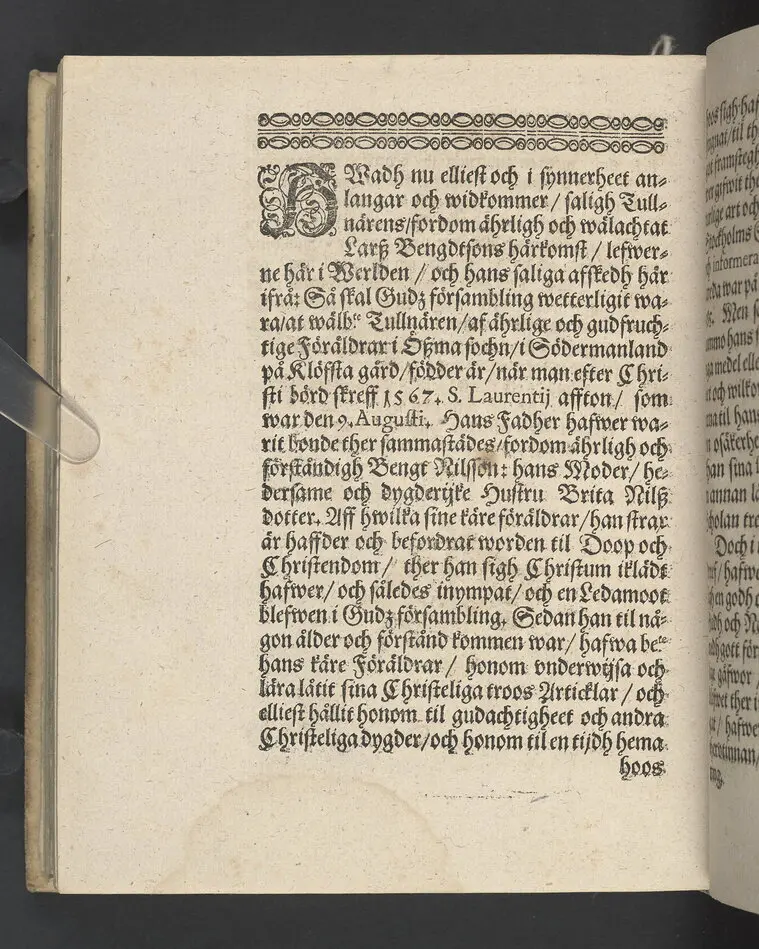 HWadh nu elliest och i synnerheet an-
langar och widkommer / saligh Tull-
närens/fordom ährligh och wälachtat
Larß Bengdtsons härkomst / lefwer-
ne här i Werlden / och hans saliga affskedh här
ifrå: Så skal Gudz försambling wetterligit wa-
ra/at wälb.te Tullnären/af ährlige och gudfruch-
tige Föräldrar i Ößma sochn/i Södermanland
på Klöffsta gård/födder är/när man efter Chri-
sti börd skreff 1567. S. Laurentij affton/ som
war den 9. Augusti. Hans Fadher hafwer wa-
rit bonde ther sammastädes/fordom ährligh och
förständigh Bengt Nilsson: hans Moder/ he-
dersame och dygderijke Hustru Brita Nilß
dotter. Aff hwilka sine käre föräldrar/han strax
är haffder och befordrat worden til Doop och
Christendom/ ther han sigh Christum iklädt
hafwer/ och således inympat/ och en Ledamoot
blefwen i Gudz försambling. Sedan han til nå-
gon ålder och förstånd kommen war/ hafwa be.te
hans käre Föräldrar/ honom vnderwijsa och
lära lätit sina Christeliga troos Articklar / och
elliest hållit honom til gudachtigheet och andra
Christeliga dygder/och honom til en tijdh hema
hoos